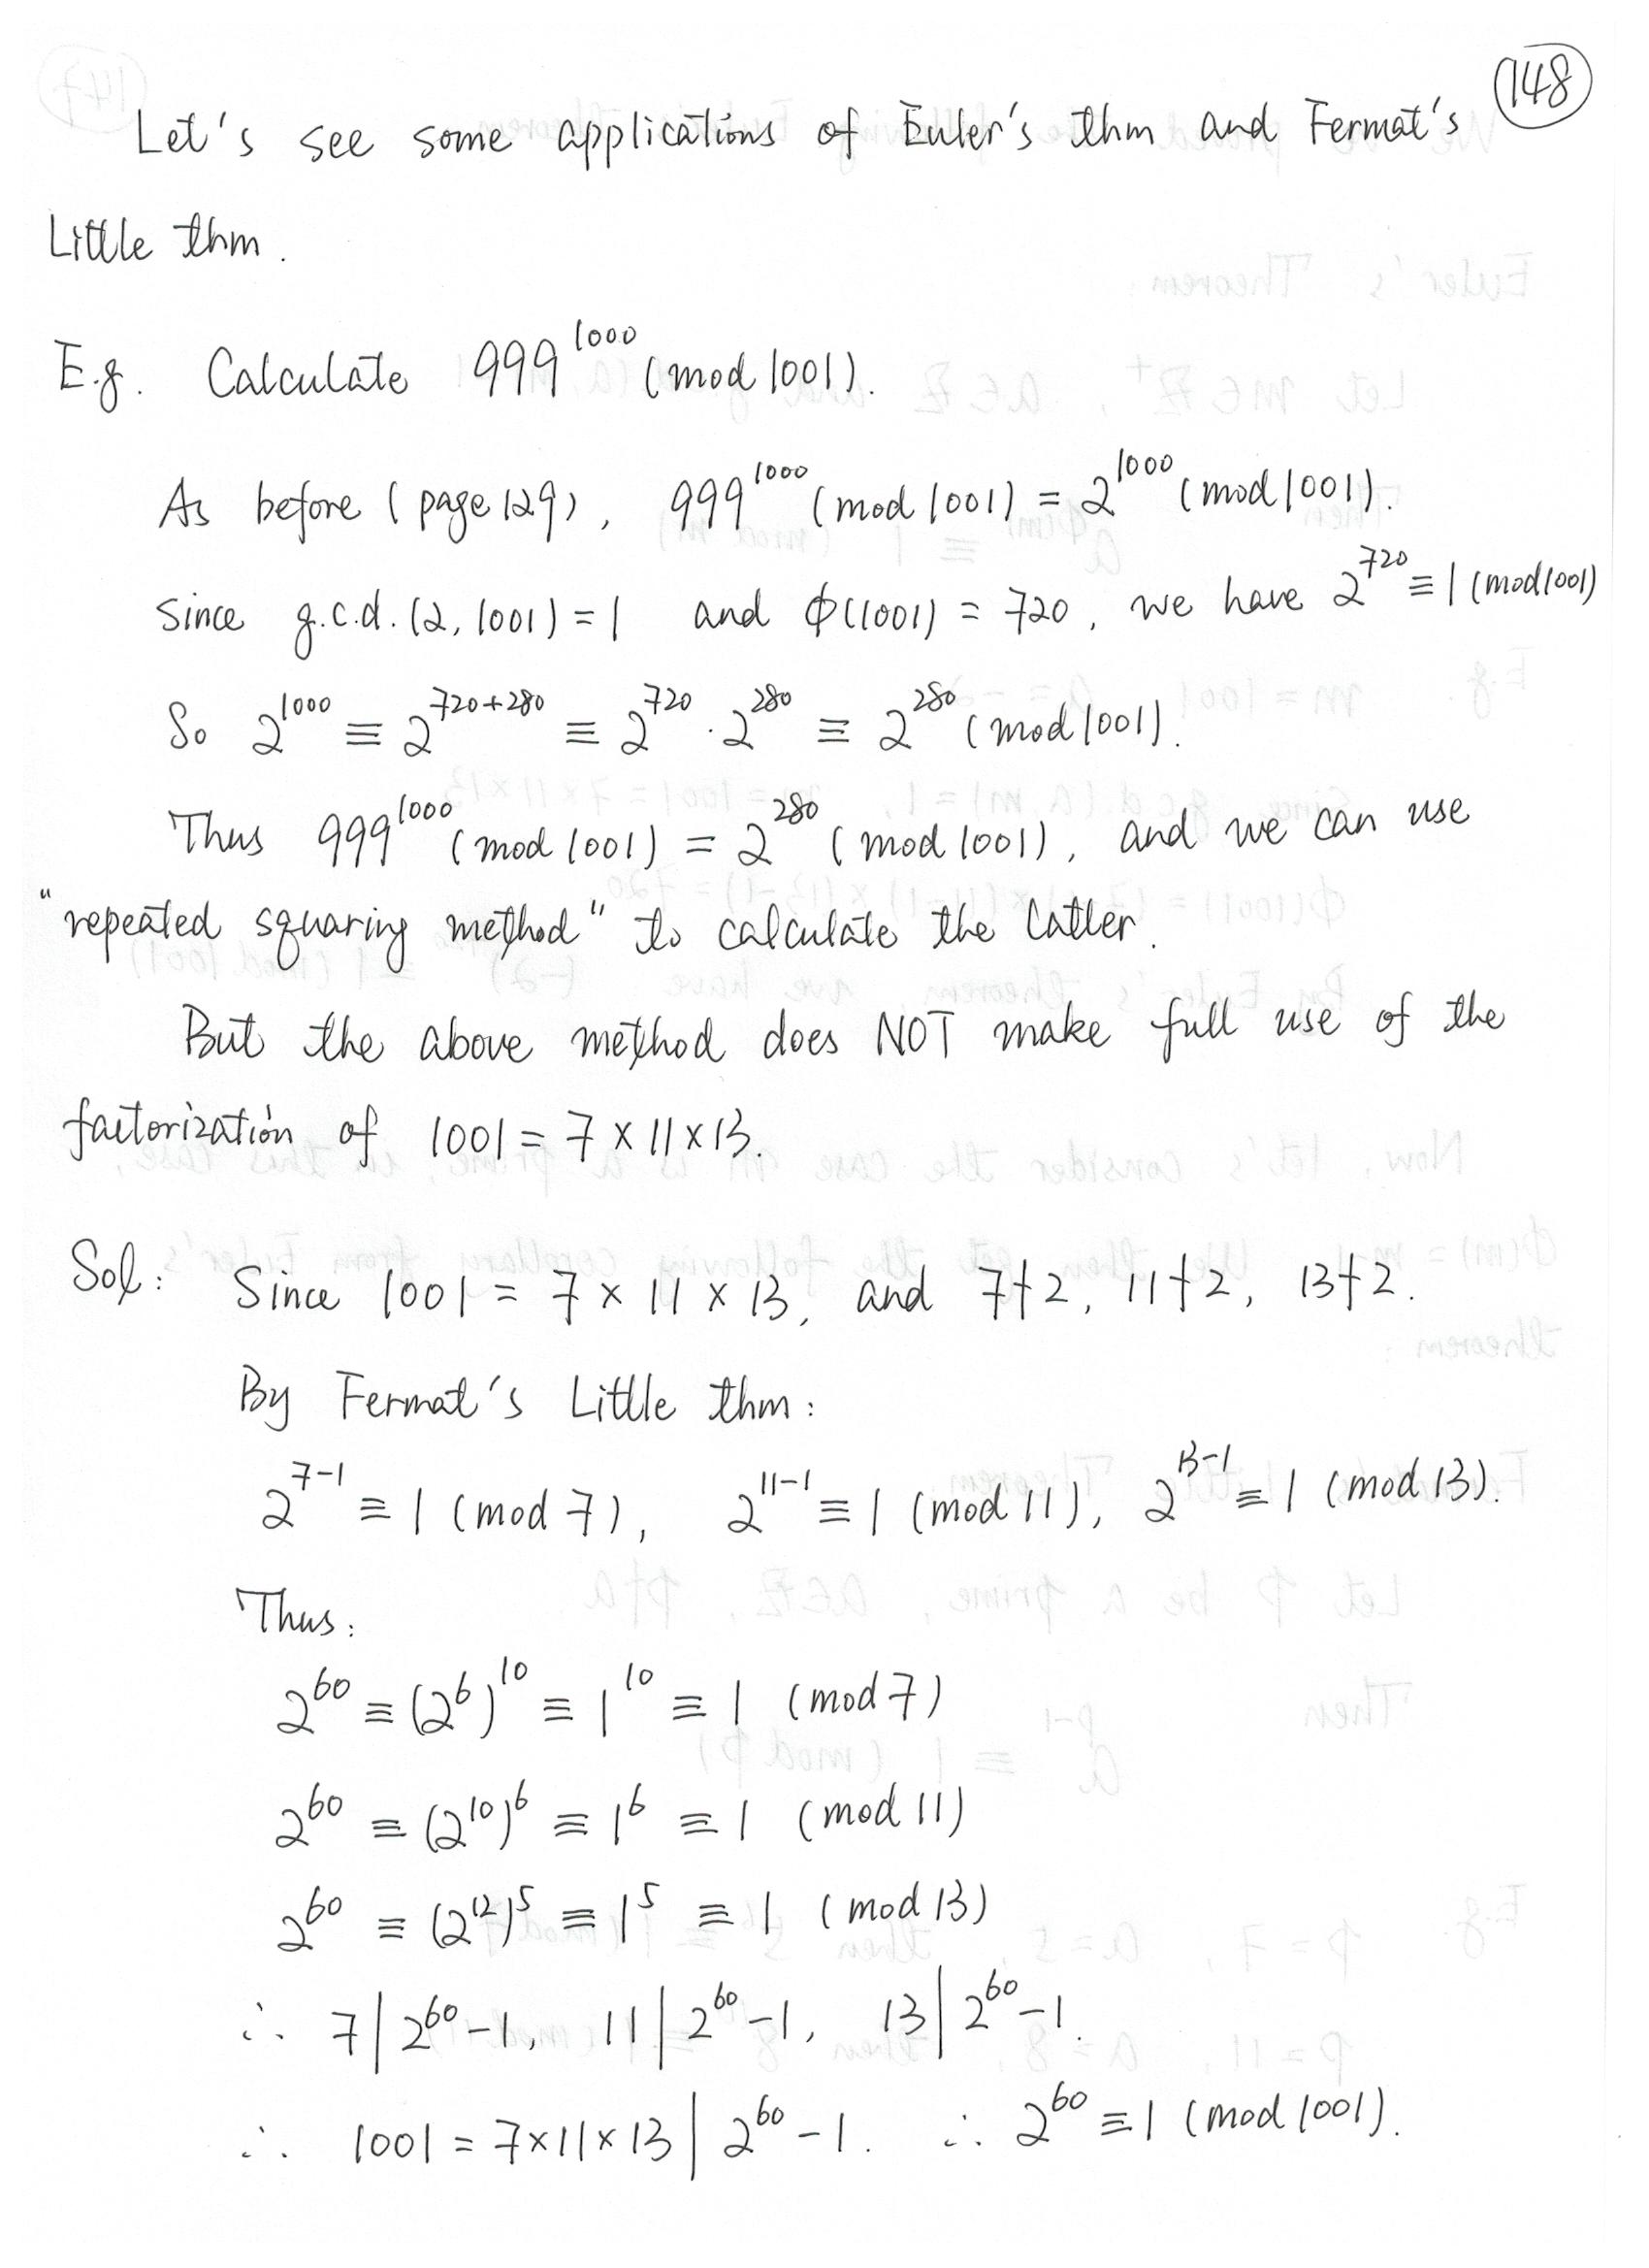 148
Let's see some applications of Euler's thm and Fermat's
Little thm.
E.g. Calculate 999^1000 (mod 1001).
As before (page 129), 999^1000 (mod 1001) = 2^1000 (mod 1001).
Since g.c.d. (2, 1001) = 1 and ϕ(1001) = 720, we have 2^720 ≡ 1 (mod 1001)
So 2^1000 ≡ 2^720+280 ≡ 2^720 · 2^280 ≡ 2^280 (mod 1001).
Thus 999^1000 (mod 1001) = 2^280 (mod 1001), and we can use
"repeated squaring method" to calculate the latter.
But the above method does NOT make full use of the
factorization of 1001 = 7 × 11 × 13.
Sol: Since 1001 = 7 × 11 × 13, and 7∤2, 11∤2, 13∤2.
By Fermat's Little thm:
2^7-1 ≡ 1 (mod 7), 2^11-1 ≡ 1 (mod 11), 2^13-1 ≡ 1 (mod 13).
Thus:
2^60 ≡ (2^6)^10 ≡ 1^10 ≡ 1 (mod 7)
2^60 ≡ (2^10)^6 ≡ 1^6 ≡ 1 (mod 11)
2^60 ≡ (2^12)^5 ≡ 1^5 ≡ 1 (mod 13)
∴ 7 | 2^60 - 1, 11 | 2^60 - 1, 13 | 2^60 - 1.
∴ 1001 = 7×11×13 | 2^60 - 1. ∴ 2^60 ≡ 1 (mod 1001).